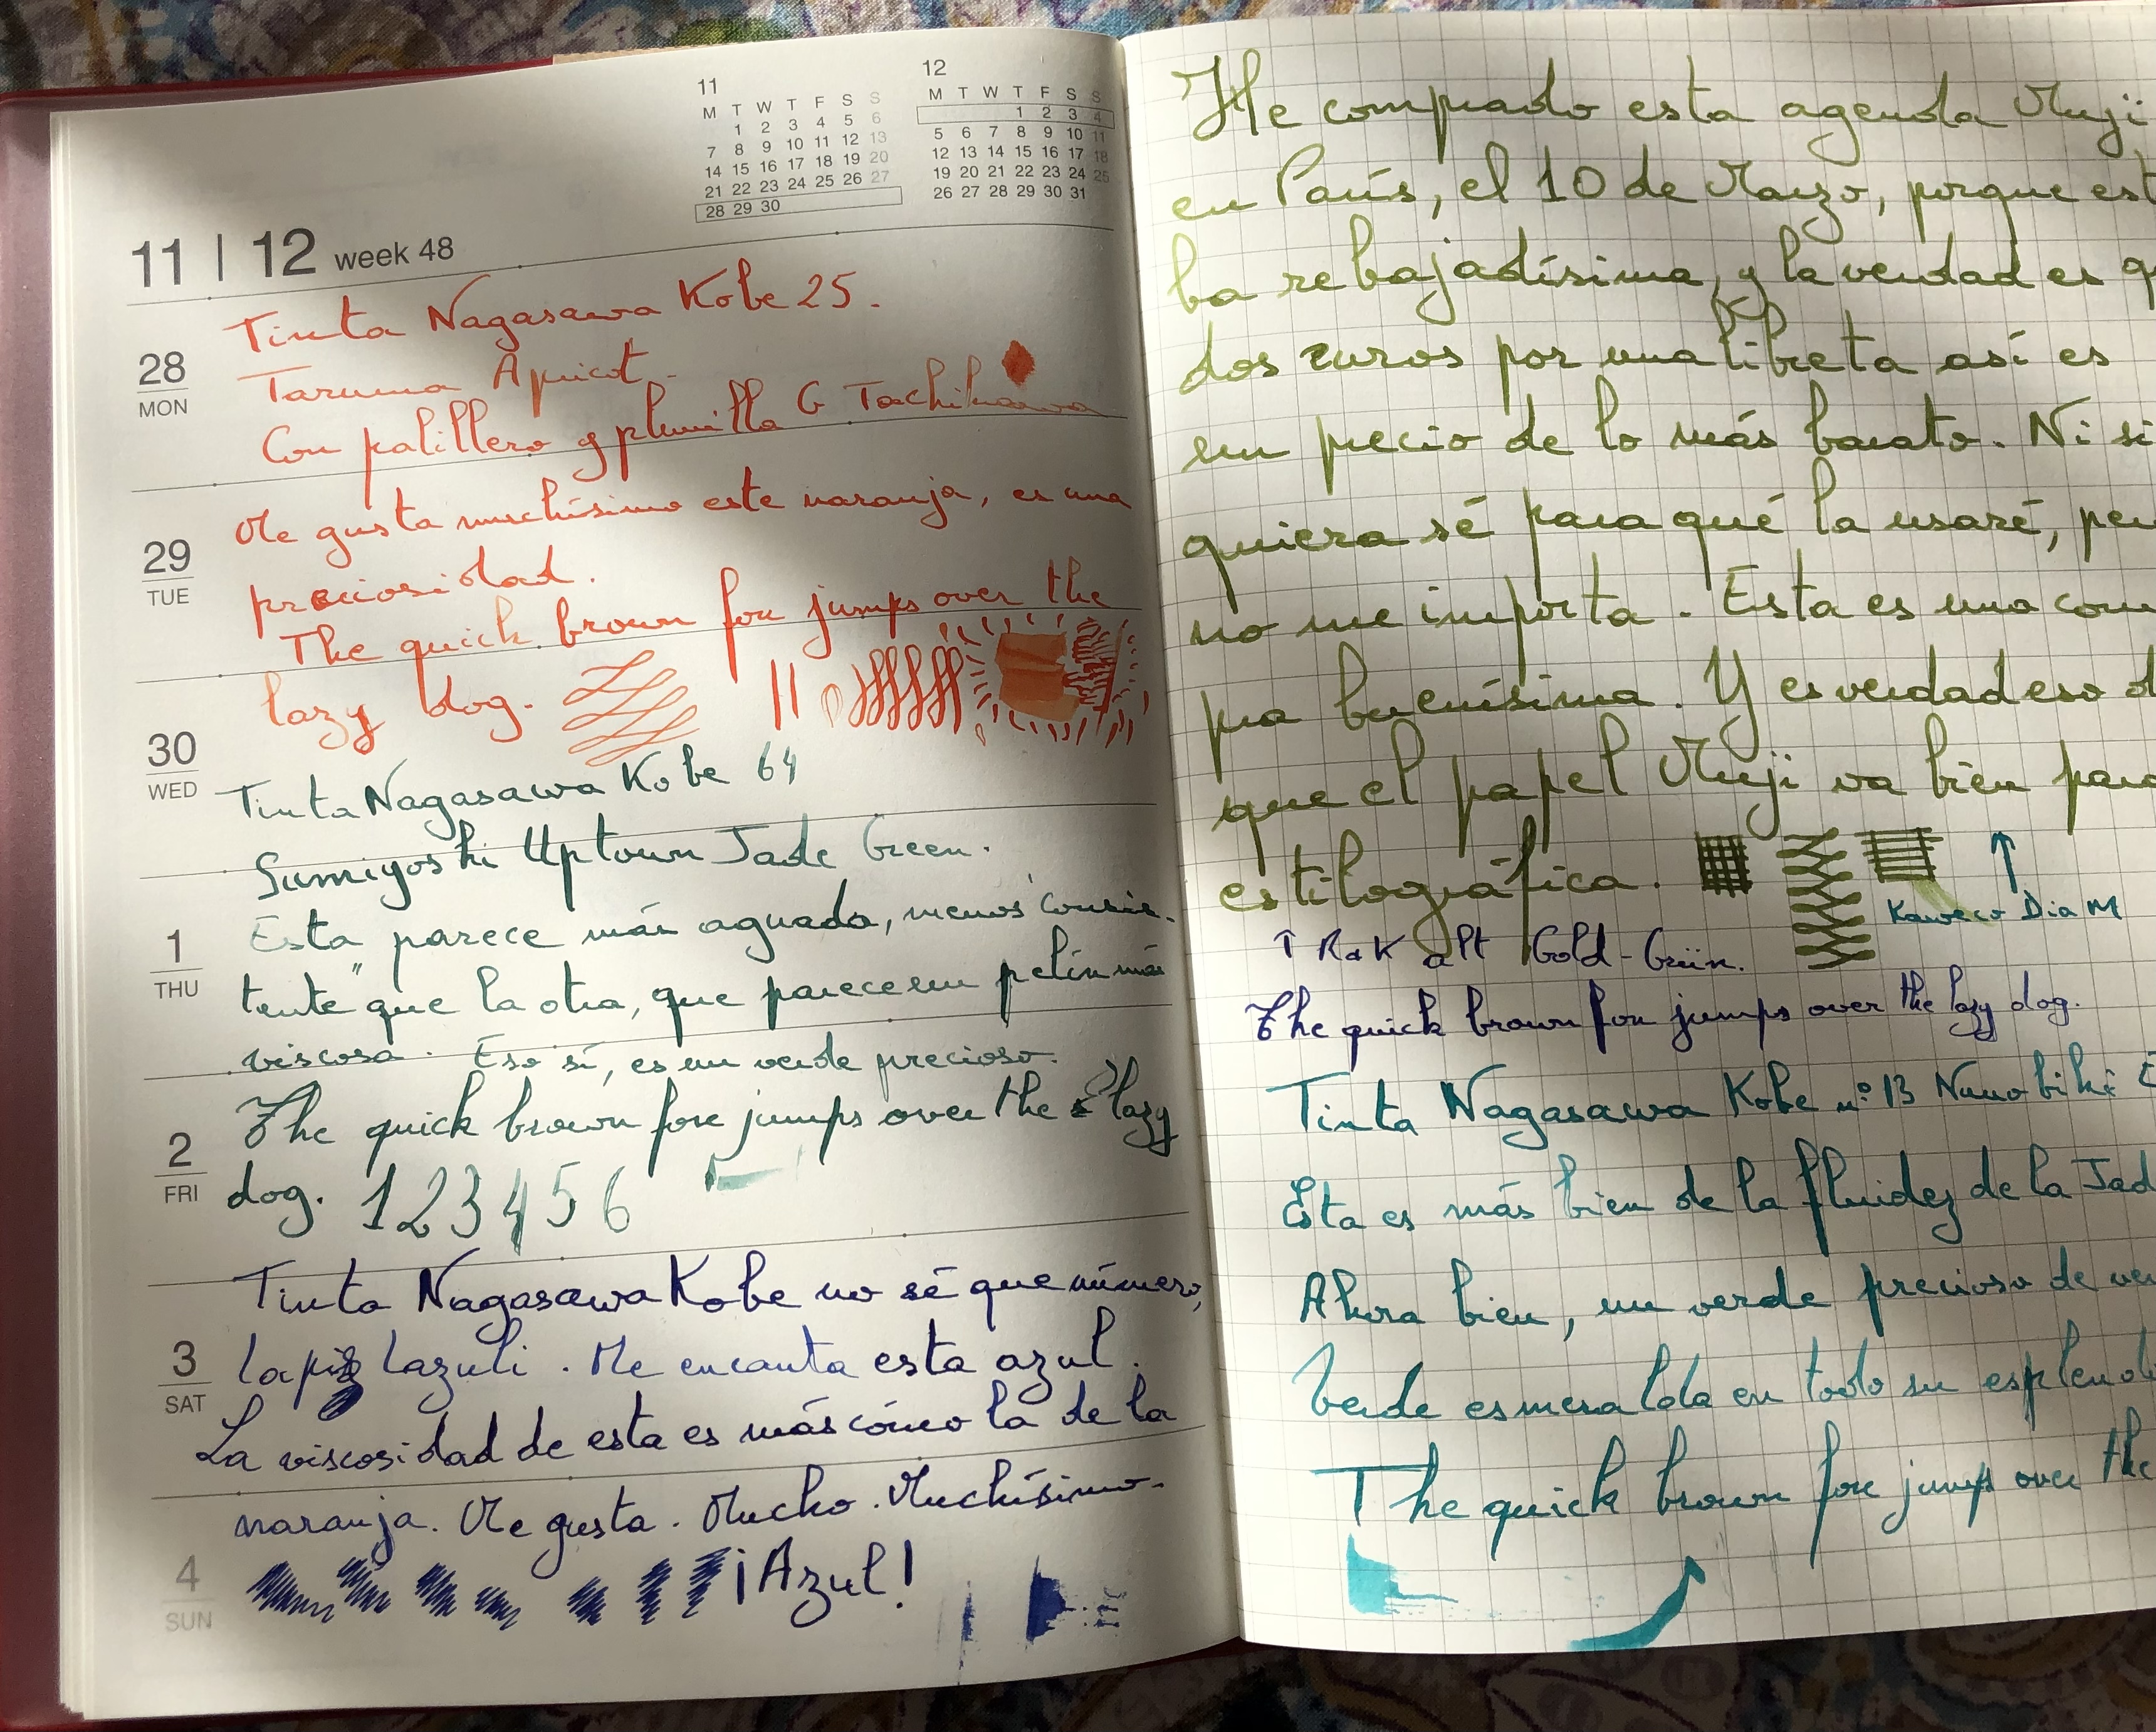 11
M T W T F S S
1 2 3 4 5 6
7 8 9 10 11 12 13
14 15 16 17 18 19 20
21 22 23 24 25 26 27
28 29 30
12
M T W T F S S
1 2 3 4
5 6 7 8 9 10 11
12 13 14 15 16 17 18
19 20 21 22 23 24 25
26 27 28 29 30 31
11 | 12 week 48
28
MON
29
TUE
30
WED
1
THU
2
FRI
3
SAT
4
SUN
Tinta Nagasawa Kobe 25.
Taruma Apricot.
Con palillero y plumilla G Tachikawa
Me gusta muchísimo este naranja, es una
preciosidad.
The quick brown fox jumps over the
lazy dog.
Tinta Nagasawa Kobe 64
Sumiyoshi Uptown Jade Green.
Esta parece más aguada, menos "consis-
tente" que la otra, que parece un pelín más
viscosa. Eso sí, es un verde precioso.
The quick brown fox jumps over the lazy
dog. 1 2 3 4 5 6
Tinta Nagasawa Kobe no sé que número,
lapiz lazuli. Me encanta esta azul.
La viscosidad de esta es más cómo la de la
naranja. Me gusta. Mucho. Muchísimo.
¡Azul!
He comprado esta agenda Muji
en París, el 10 de Marzo, porque est
ba rebajadísima, y la verdad es q
dos euros por una libreta así es
un precio de lo más barato. Ni si
quiera sé para qué la usaré, per
no me importa. Esta es una com
pra buenísima. Y es verdad eso d
que el papel Muji va bien para
estilográfica.
↑
Kaweco Dia M
↑ R&K alt Gold-Grün.
The quick brown fox jumps over the lazy dog.
Tinta Nagasawa Kobe nº 13 Nunobiki E
Esta es más bien de la fluidez de la Jad
Ahora bien, un verde precioso de ver
Verde esmeralda en todo su esplendo
The quick brown fox jumps over the